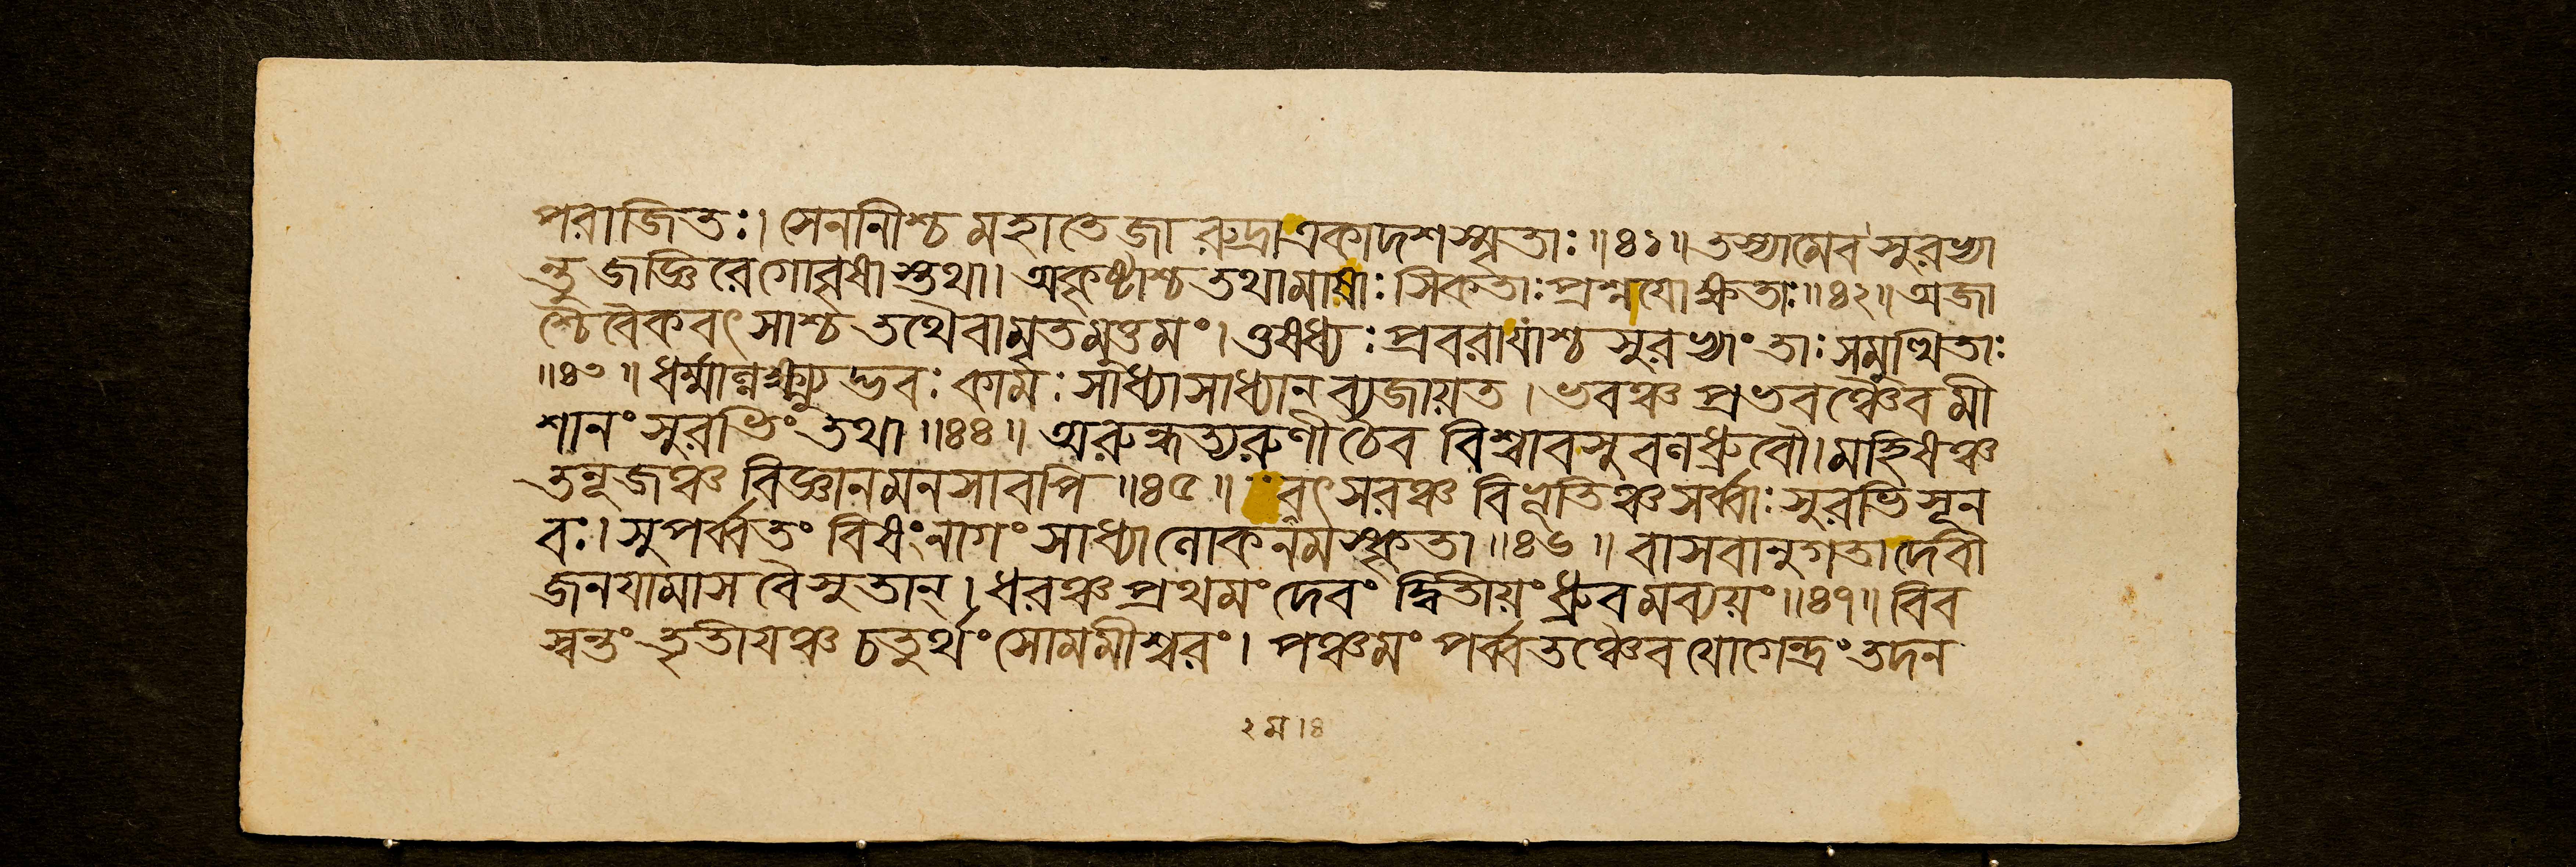 পরাজিতঃ। সেননীশ্চ মহাতেজা রুদ্রা একাদশ স্মৃতাঃ ॥৪১॥ তস্যামেব সুরভ্যা
ন্তু জজ্ঞিরে গোবৃষাস্তথা। অকৃষ্টাশ্চ তথা মাষাঃ সিকতাঃ প্রশ্নয়োক্ষিতাঃ॥৪২॥ অজা
শ্চৈবৈকবৎসাশ্চ তথৈবামৃতমুত্তমং। ওষধ্যঃ প্রবরা যাশ্চ সুরভ্যাং তাঃ সমুত্থিতাঃ
॥৪৩॥ ধর্ম্মান্নক্ষ্ম্যুদ্ভবঃ কামঃ সাধ্যা সাধ্যান ব্যজায়ত। ভবঞ্চ প্রভবঞ্চৈবমী
শানং সুরভিং তথা ॥৪৪॥ অরুন্ধত্যরুণী চৈব বিশ্বাবসুবনধ্রুবৌ। মহিষঞ্চ
তনূজঞ্চ বিজ্ঞানমনসাবপি ॥৪৫॥ বৎসরঞ্চ বিভূতিঞ্চ সর্ব্বাঃ সুরভিসূন
বঃ। সুপর্ব্বতং বিষং নাগং সাধ্যা লোকনমস্কৃতা ॥৪৬॥ বাসবানুগতা দেবী
জনয়ামাস বৈ সুতান্। ধরঞ্চ প্রথমং দেবং দ্বিতীয়ং ধ্রুবমব্যয়ং ॥৪৭॥ বিব
স্বন্তং তৃতীয়ঞ্চ চতুর্থং সোমমীশ্বরং। পঞ্চমং পর্ব্বতঞ্চৈব যোগেন্দ্রং তদন
২ম।৪